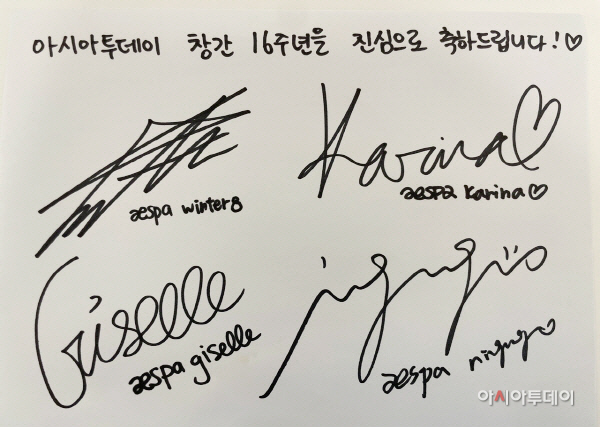 아시아투데이 창간 16주년을 진심으로 축하드립니다!♡
Karina♡
aespa winter8
aespa Karina♡
Giselle
aespa giselle
aespa ningning♡
아시아투데이